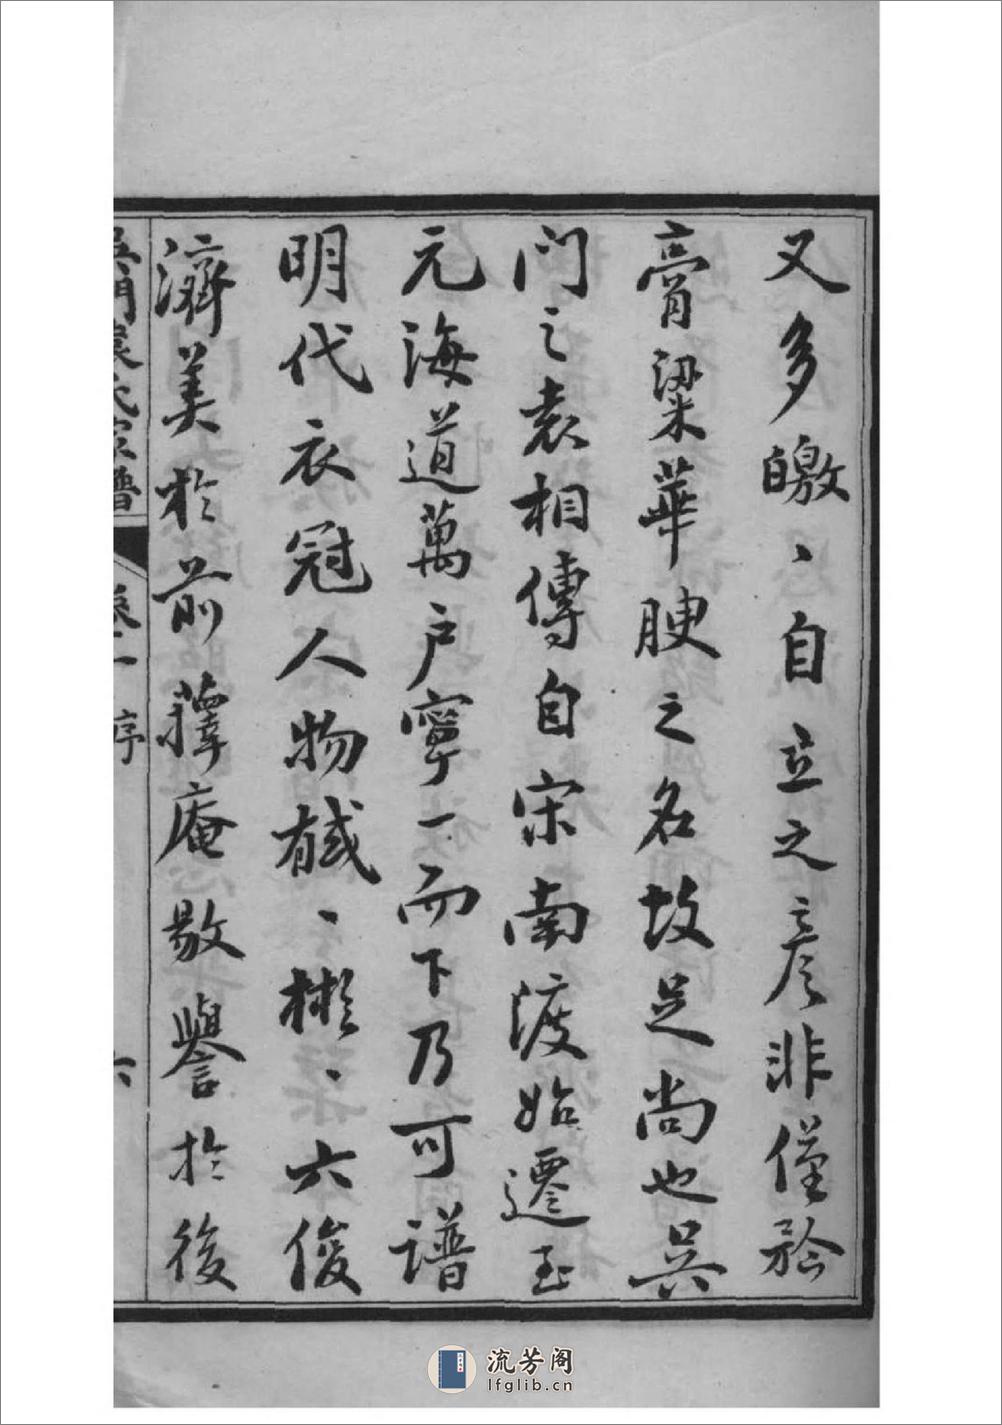 又多皦丶自立之彥非僅矜
膏粱華腴之名故足尚也吳
门之袁相傳自宋南渡始遷至
元海道萬户寧一而下乃可譜
明代衣冠人物彧丶彬丶六俊
濟美於前蘀庵敭譽於後
吳門袁氏家譜 卷一 序 六
流芳阁
lfglib.cn